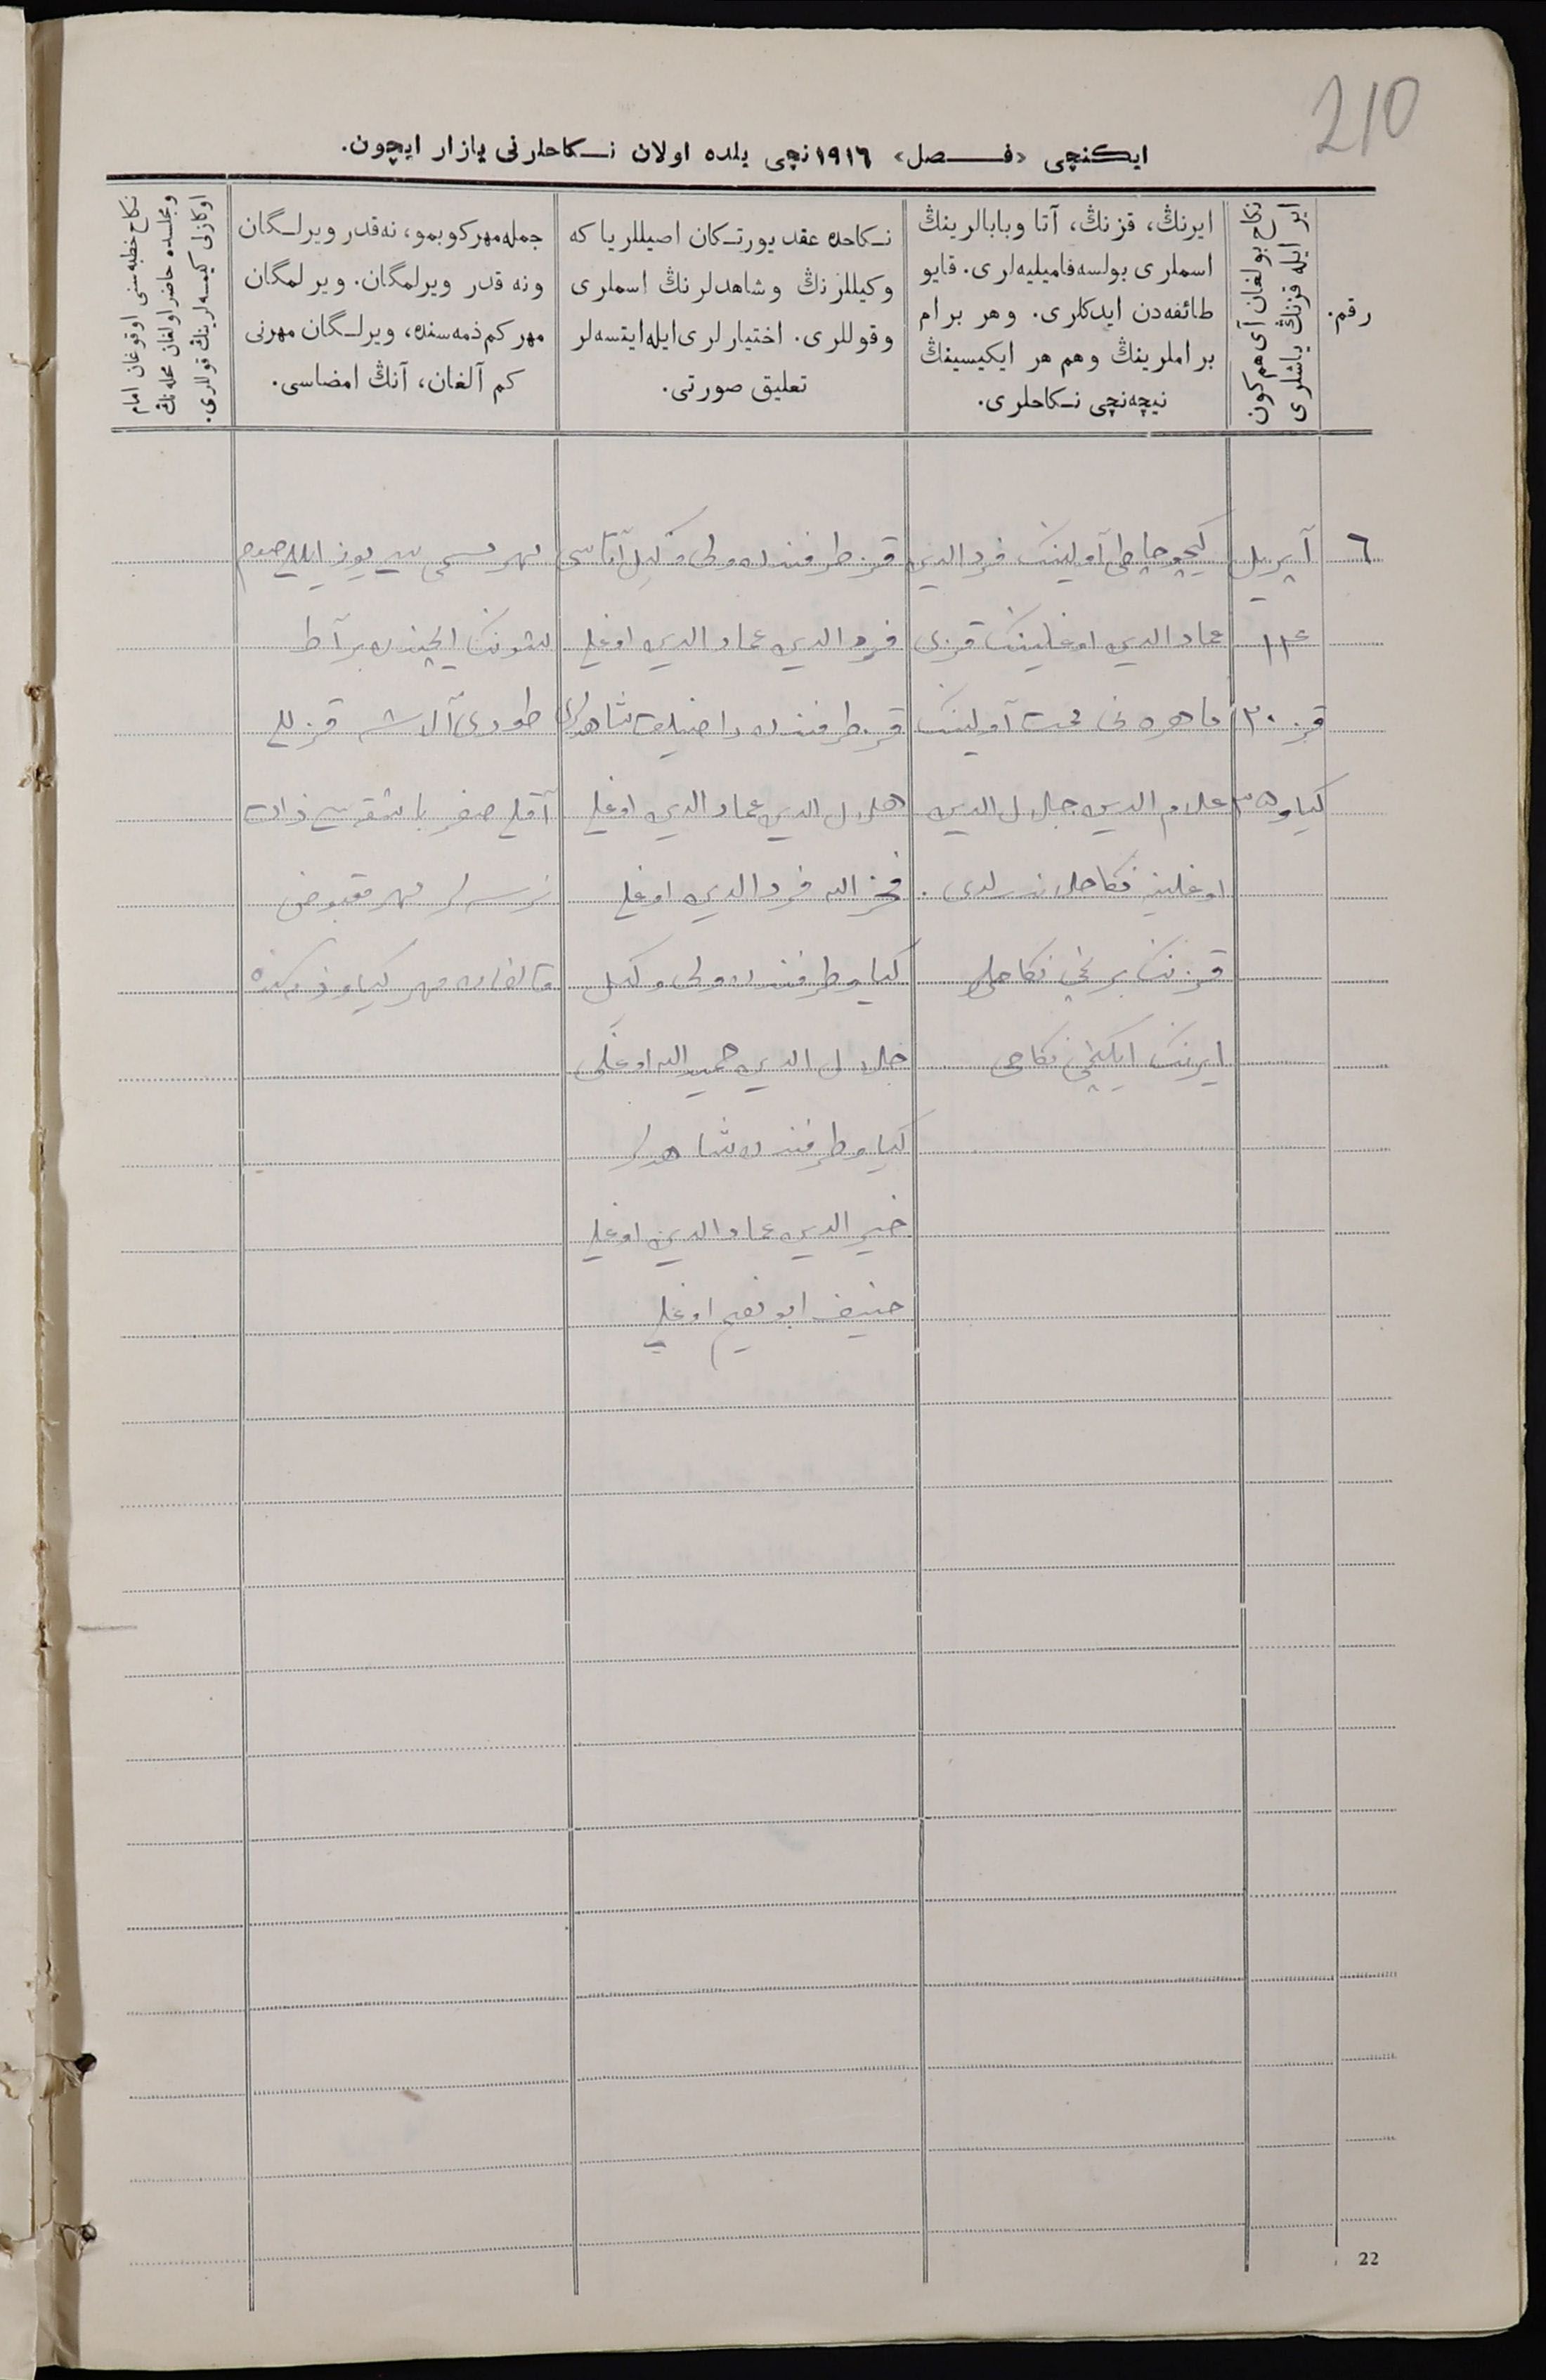 210
ایكنچی «فصل» ١٩١٦ نچی یلده اولان نكاحلرنی یازار ایچون.
رقم.
نكاح بولغان آی هم كون
ایر ایله قزنڭ یاشلری
ایرنڭ، قزنڭ، آتا وبابالرینڭ
اسملری بولسه فامیلیه‌لری. قایو
طائفه‌دن ایدكلری. وهر برام
براملرینڭ وهم هر ایكیسینڭ
نیچه‌نچی نكاحلری.
نكاحده عقد یورتكان اصیللریا كه
وكیللرنڭ وشاهدلرنڭ اسملری
وقوللری. اختیارلری ایله ایتسه‌لر
تعلیق صورتی.
جمله مهر كوبمو، نه‌قدر ویرلگان
ونه قدر ویرلمگان. ویرلمگان
مهر كم ذمه‌سنده، ویرلگان مهرنی
كم آلغان، آنڭ امضاسی.
نكاح خطبه‌سنی اوقوغان امام
ومجلسده حاضر اولغان محله‌نڭ
اوكازلی كیمسه‌لرینڭ قوللری.
٦
آپریل
١١
قز ٢٠
كیاو ٣٥
كیچو چاطی آولینڭ فردالدین
عمادالدین اوغلینڭ قزی
ماهره نی آولینڭ
علام الدین جلال الدین
اوغلینه نكاحلاندرلدی.
قزنڭ برنچی نكاحی
ایرنڭ ایكنچی نكاحی
قز طرفندن ولی وكیل آتاسی
فردالدین عمادالدین اوغلی
قز طرفندن شاهدلری
هلال الدین عمادالدین اوغلی
فخر الله فردالدین اوغلی
كیاو طرفندن ولی وكیل
جلال الدین حمید الله اوغلی
كیاو طرفندن شاهدلر
خیر الدین عمادالدین اوغلی
حنیف ابو نعیم اوغلی
مهر مسمی یوز ایللی صوم
شونڭ ایچنده بر آط
قزللی
مهر مقبوض
مهر كیاو
22